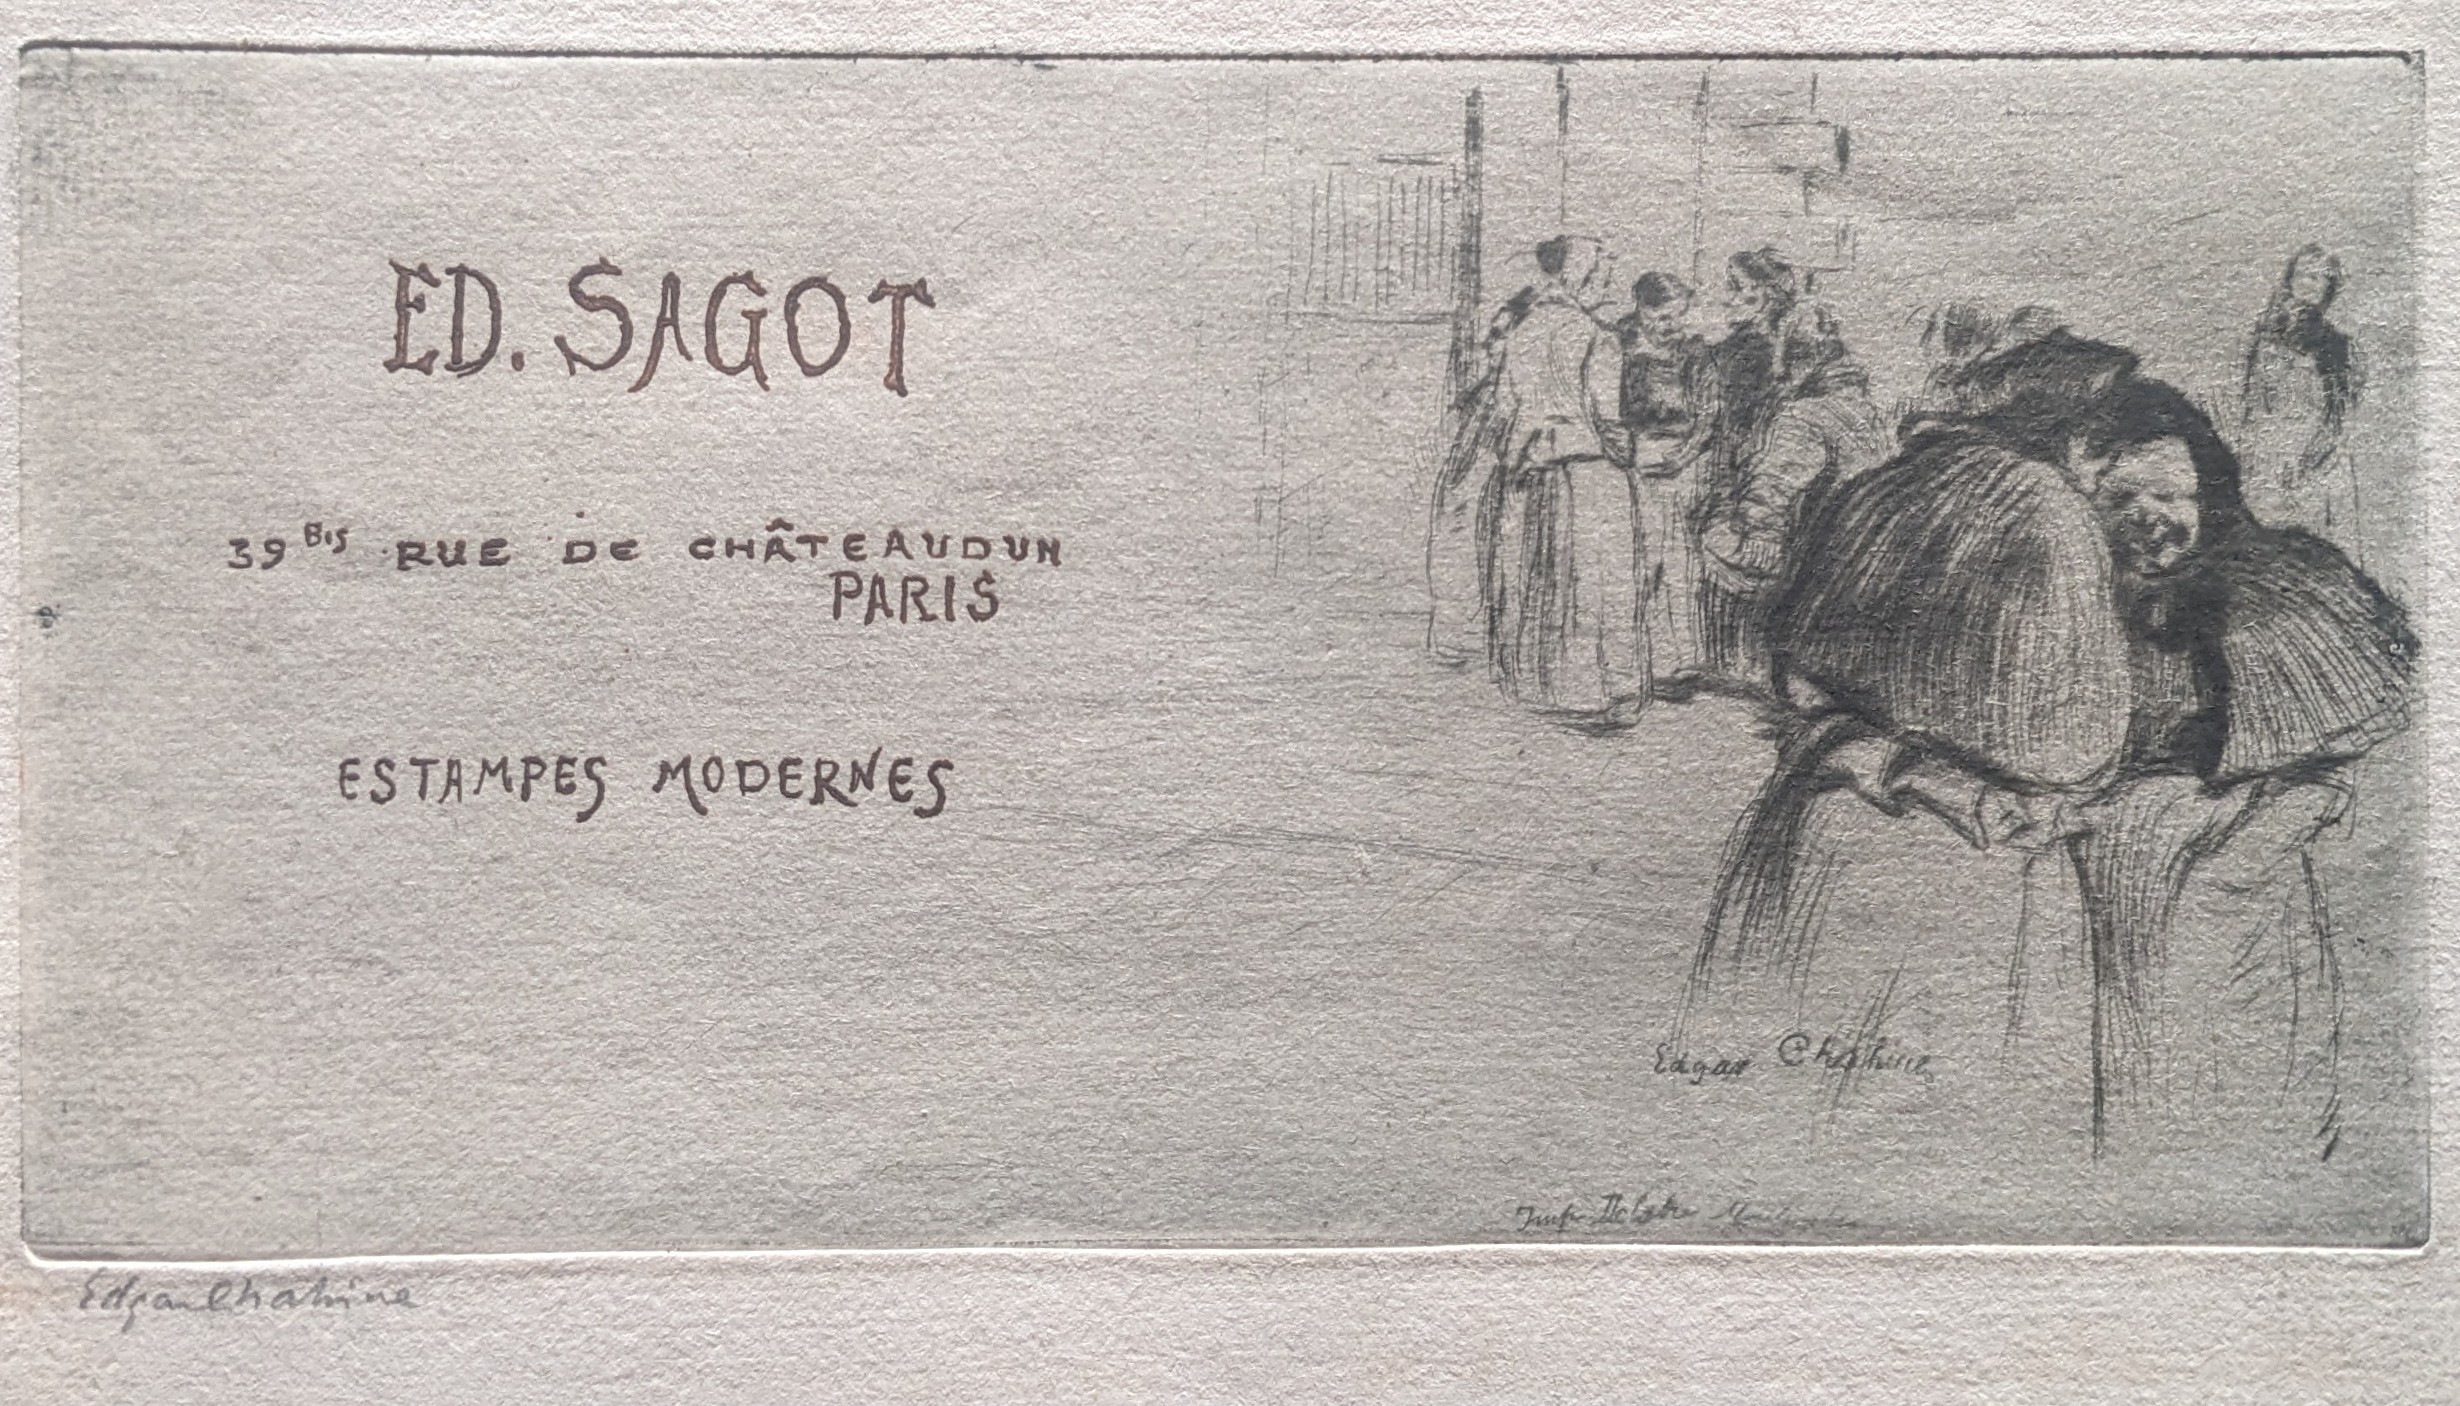 ED. SAGOT
39 BIS RUE DE CHÂTEAUDUN
PARIS
ESTAMPES MODERNES
Edgar Chahine
Imp Delatre
Edgar Chahine